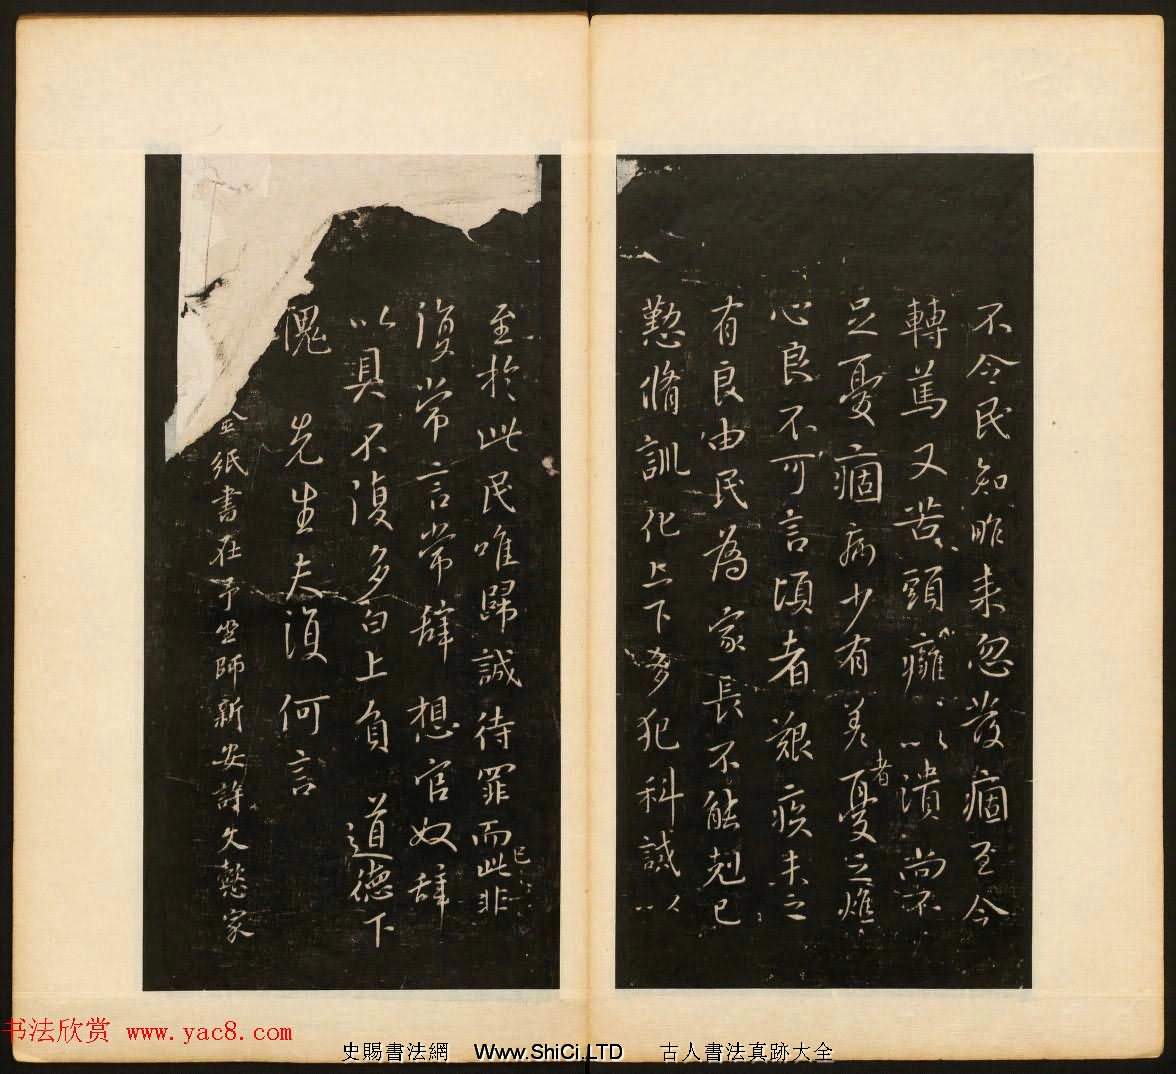 不令民知昨来忽發痼至今
轉篤又苦頭癰以潰尚不
足憂痼病少有差憂之燋
者
心良不可言頃者艱疾未之
有良由民為家長不能剋己
懃脩訓化上下多犯科誡以
至於此民唯歸誠待罪而此非
已
復常言常辭想官奴辭
以具不復多白上負 道德下
愧 先生夫復何言
金紙書在予坐師新安許文懿家
书法欣赏 www.yac8.com
史賜書法網 Www.ShiCi.LTD 古人書法真跡大全